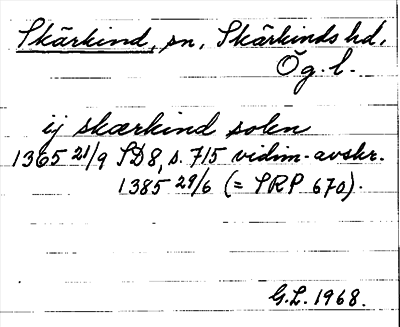 Skärkind, sn, Skärkinds hd,
Ög. l.
ij skærkind sokn
1365 21/9 SD8, s. 715 vidim-avskr.
1385 29/6 (= SRP 670).
G.L. 1968.